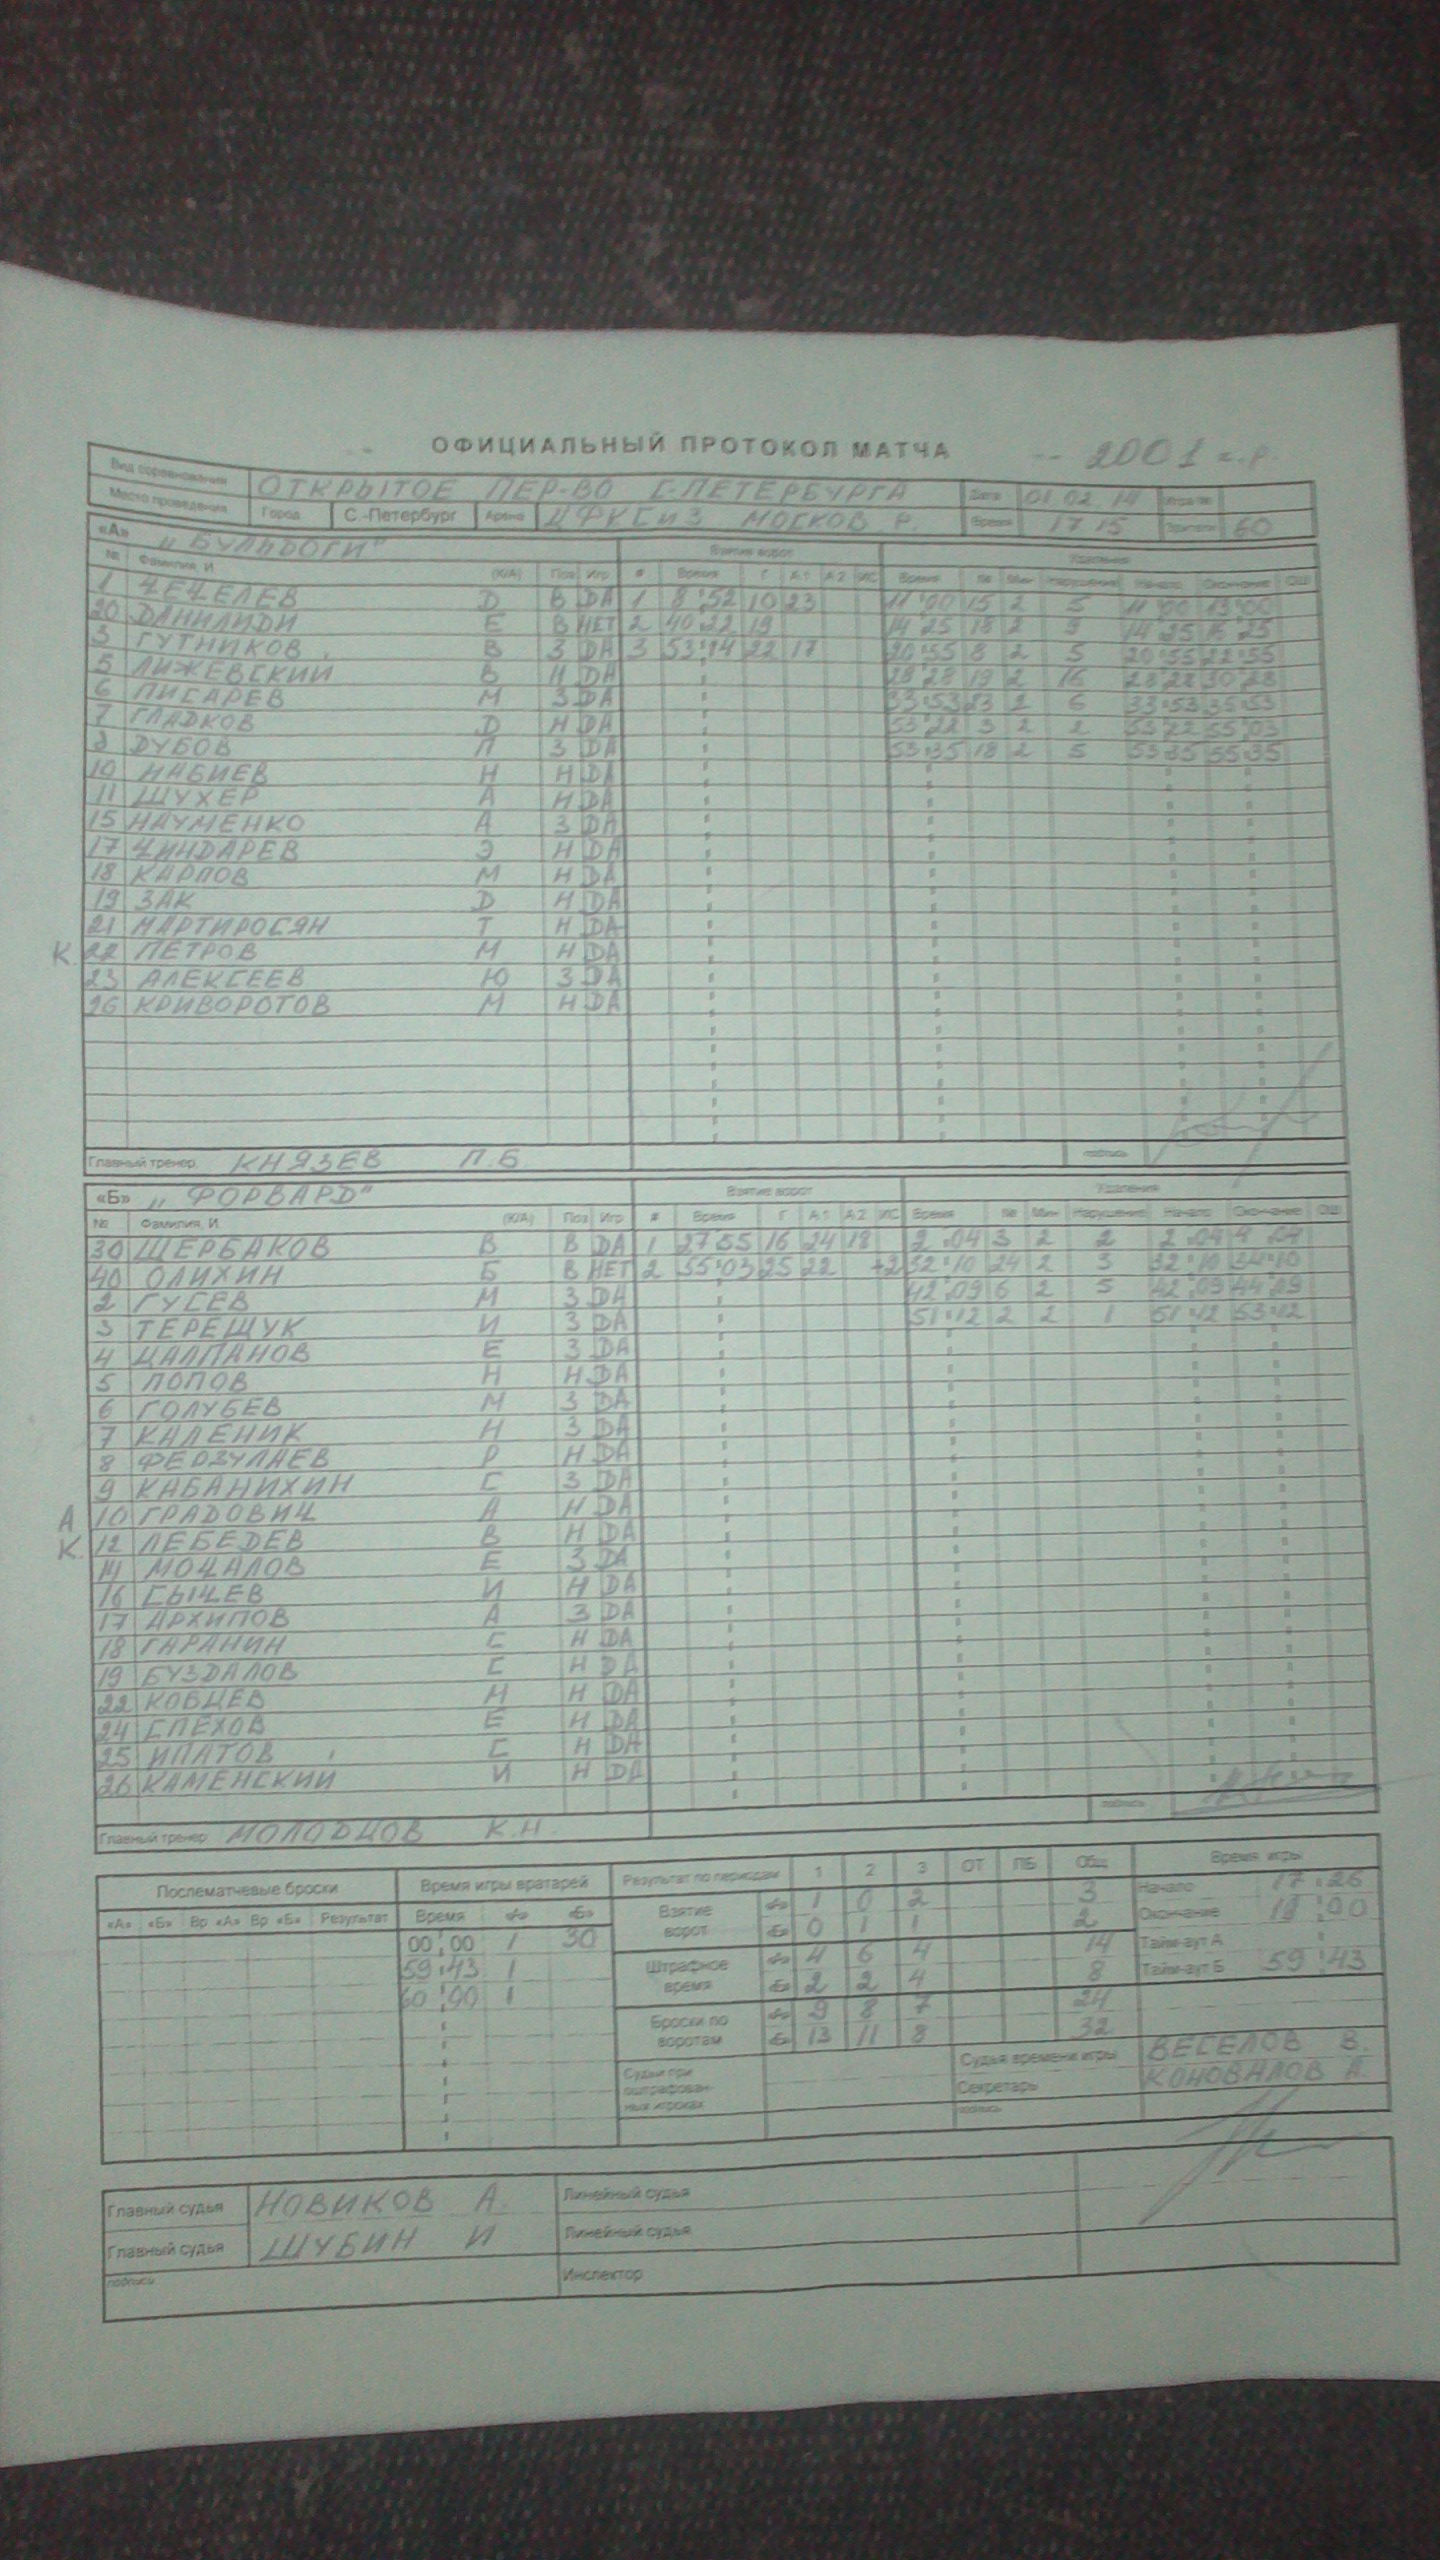 ОФИЦИАЛЬНЫЙ ПРОТОКОЛ МАТЧА -- 2001 г.р.
Вид соревнования ОТКРЫТОЕ ПЕР-ВО С-ПЕТЕРБУРГА Дата 01 02 14
Место проведения Город С.-Петербург Арена ЦФКСиЗ МОСКОВ Р. Время 17 15 Зрители 60
«А» „БУЛЬДОГИ" Взятие ворот Удаления
№ Фамилия, И. (К/А) Поз Игр # Время Г А1 А2 ИС Время № Мин Нарушение Начало Окончание ОШ
1 ЧЕЧЕЛЕВ D В DA 1 8:52 10 23 11:00 15 2 5 11:00 13:00
20 ДАНИЛИДИ Е В НЕТ 2 40:22 19 14:25 18 2 9 14:25 16:25
3 ГУТНИКОВ В З DA 3 53:14 22 17 20:55 8 2 5 20:55 22:55
5 ЛИЖЕВСКИЙ В Н DA 28:28 19 2 16 28:28 30:28
6 ПИСАРЕВ М З DA 33:53 23 2 6 33:53 35:53
7 ГЛАДКОВ D Н DA 53:22 3 2 2 53:22 55:03
8 DУБОВ П З DA 53:35 18 2 5 53:35 55:35
10 НАБИЕВ Н Н DA
11 ШУХЕР А Н DA
15 НАУМЕНКО А З DA
17 ЧИНДАРЕВ Э Н DA
18 КАРПОВ М Н DA
19 ЗАК D Н DA
21 МАРТИРОСЯН Т Н DA
К 22 ПЕТРОВ М Н DA
23 АЛЕКСЕЕВ Ю З DA
26 КРИВОРОТОВ М Н DA
Главный тренер КНЯЗЕВ П.Б. подпись
«Б» „ФОРВАРD" Взятие ворот Удаления
№ Фамилия, И. (К/А) Поз Игр # Время Г А1 А2 ИС Время № Мин Нарушение Начало Окончание ОШ
30 ЩЕРБАКОВ В В DA 1 27 55 16 24 18 2:04 3 2 2 2:04 4:04
40 ОЛИХИН Б В НЕТ 2 55:03 25 22 +2 32:10 24 2 3 32:10 34:10
2 ГУСЕВ М З DA 42:09 6 2 5 42:09 44:09
3 ТЕРЕЩУК И З DA 51:12 2 2 1 51:12 53:12
4 ЦАЛПАНОВ Е З DA
5 ПОПОВ Н Н DA
6 ГОЛУБЕВ М З DA
7 КАЛЕНИК Н З DA
8 ФЕЙЗУЛАЕВ Р Н DA
9 КАБАНИХИН С З DA
А 10 ГРАДОВИЧ А Н DA
К. 12 ЛЕБЕDЕВ В Н DA
14 МОЧАЛОВ Е З DA
16 СЫЧЕВ И Н DA
17 АРХИПОВ А З DA
18 ГАРАНИН С Н DA
19 БУЗДАЛОВ С Н DA
22 КОВЦЕВ М Н DA
24 СПЕХОВ Е Н DA
25 ИПАТОВ С Н DA
26 КАМЕНСКИЙ И Н DA
Главный тренер МОЛОDЦОВ К.Н. подпись
Послематчевые броски Время игры вратарей Результат по периодам 1 2 3 ОТ ПБ Общ Время игры
«А» «Б» Вр «А» Вр «Б» Результат Время «А» «Б»
Взятие ворот «А» 1 0 2 3 Начало 17:26
00:00 1 30 «Б» 0 1 1 2 Окончание 19:00
59:43 1 Штрафное время «А» 4 6 4 14 Тайм-аут А
60:00 1 «Б» 2 2 4 8 Тайм-аут Б 59:43
Броски по воротам «А» 9 8 7 24
«Б» 13 11 8 32
Судьи при оштрафованных игроках Судья времени игры ВЕСЕЛОВ В.
Секретарь КОНОВАЛОВ А.
подпись
Главный судья НОВИКОВ А. Линейный судья
Главный судья ШУБИН И Линейный судья
подписи Инспектор